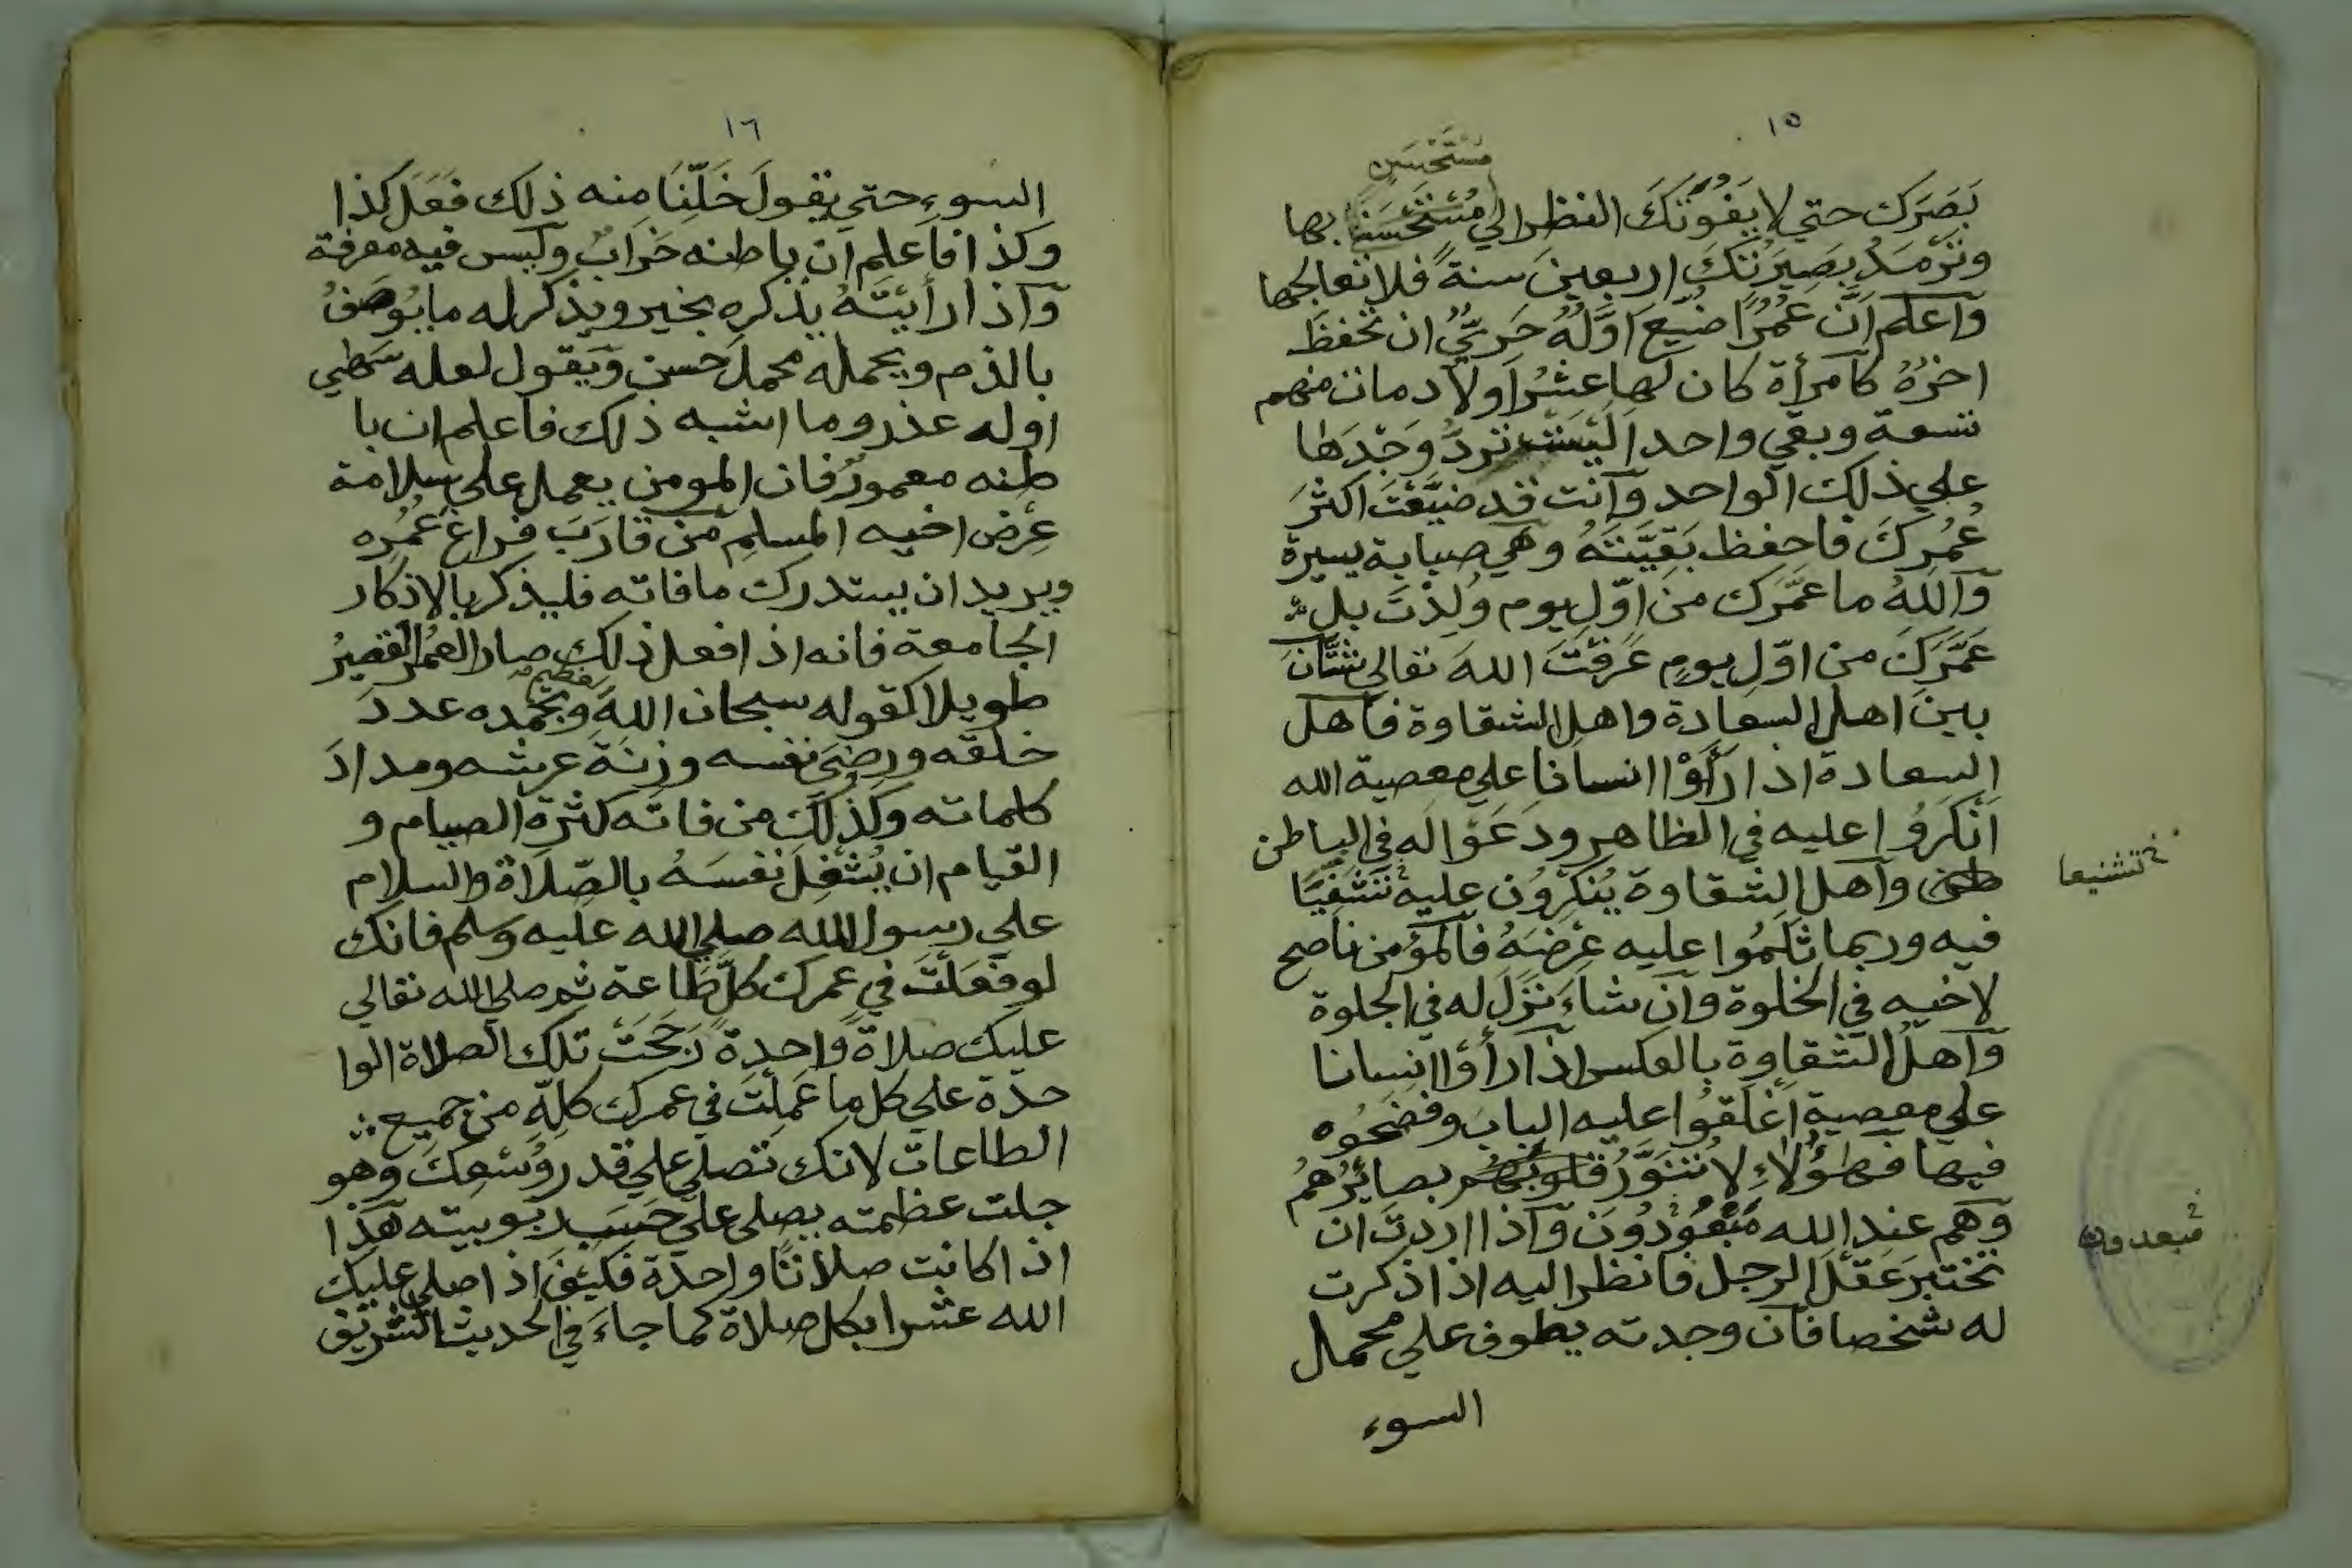 ١٥
مُسْتَحْسَنٍ
بَصَرَك حتي لا يَفُوتَكَ النظر الي مُسْتَحْسَنٍ بها
وتَرْمَدُ بصِيرَتُكَ اربعينَ سنةً فلا تعالجها
وَاعلم اَنَّ عُمُرًا ضيِّعَ اَوَّلُهُ حَرِيٌّ ان تحْفظَ
اخرُهُ كآمرأة كان لها عشرُ اولاد مات منهم
تسعة وبقي واحد اَلَيْسَتْ تردُّ وَجْدَهَا
علي ذلك الواحد وَآنت قد ضيَّعْتَ اكثرَ
عُمُرِكَ فاحفظ بَقِيَّتَهُ وهي صبابة يسيرة
وَآللهُ ما عمَّرَك منَ اوّلِ يوم وُلِدْتَ بل
عَمَّرَكَ من اوّلِ يومٍ عَرَفْتَ اللهَ تعالي شتَّانَ
بين اهل السعادة واهل الشقاوة فآهل
السعادة اذا رَأَوْا انسانا علي معصية الله
اَنْكَرُوا عليه في الظاهر ودَعَوْا له في الباطن
طن وآهل الشقاوة يُنْكِرُون عليه تَشَفِّيًا
خ تشنيعا
فيه وربما ثَلَمُوا عليه عِرْضَهُ فآلمؤمن ناصح
لاخيه في الخلوة وآن شاءَ نَزَلَ له في الجلوة
وَآهل الشقاوة بالعكس اذآ رأَوْا انسانا
علي معصية اَغْلَقُوا عليه البابَ وفضحُوه
فيها فهٰؤُلاءِ لا تتنَوَّرُ قلوبُهُم بصائِرُهُمُ
وَهم عند الله مَبْعُودُونَ وَآذا اردتَ ان
خ مبعدون
تختبرَ عَقْلَ الرجل فانظر اليه اذا ذكرت
له شخصا فآن وجدته يطوف علي محمل
السوء
١٦
السوء حتي يقولَ خَلِّنَا منه ذلك فَعَلَ كذا
وَكذا فآعلم آن باطنه خَرَابٌ وليس فيه معرفة
وَآذا رأَيْتَهُ يذكره بخير ويذكر له ما يُوصَفُ
بالذم ويحمله محملَ حسن وَيَقول لعله سَهَي
او له عذر وما اشبه ذلك فآعلم ان با
طنه معمورٌ فان المومن يعمل علي سلامة
عِرْض اخيه المسلم مَن قارَبَ فراغَ عُمُرِه
ويريد ان يستدرك ما فاته فليذكر بالاذكار
الجامعة فانه اذا فعل ذلك صار العمُرُ القصيرُ
طويلا كقوله سبحان الله العظيم وَبحمده عددَ
خلقه ورِضَي نفسه وزِنَةَ عرشه ومدادَ
كلماته وكذلك من فاتَه كثرة الصيام و
القيام ان يُشْغِلَ نفسَهُ بالصّلاة والسلام
علي رسول الله صلي الله عليه وَسلم فانك
لو فعَلْتَ في عمرك كلَّ طَاعة ثم صلي الله تعالي
عليك صلاةً واحدةً رَجَحَتْ تلك الصلاة الوا
حدَة علي كل ما عَمِلْتَ في عمرك كلِّهِ من جميع
الطاعات لانك تصلي علي قدر وُسْعِكَ وهو
جلت عظمته يصلي علي حَسَبِ ربوبيته هَذا
اذا كانت صلاتًا واحدَة فكيْفَ اذا صلي عليك
الله عشرا بكل صلاة كما جاءَ في الحديث الشريف